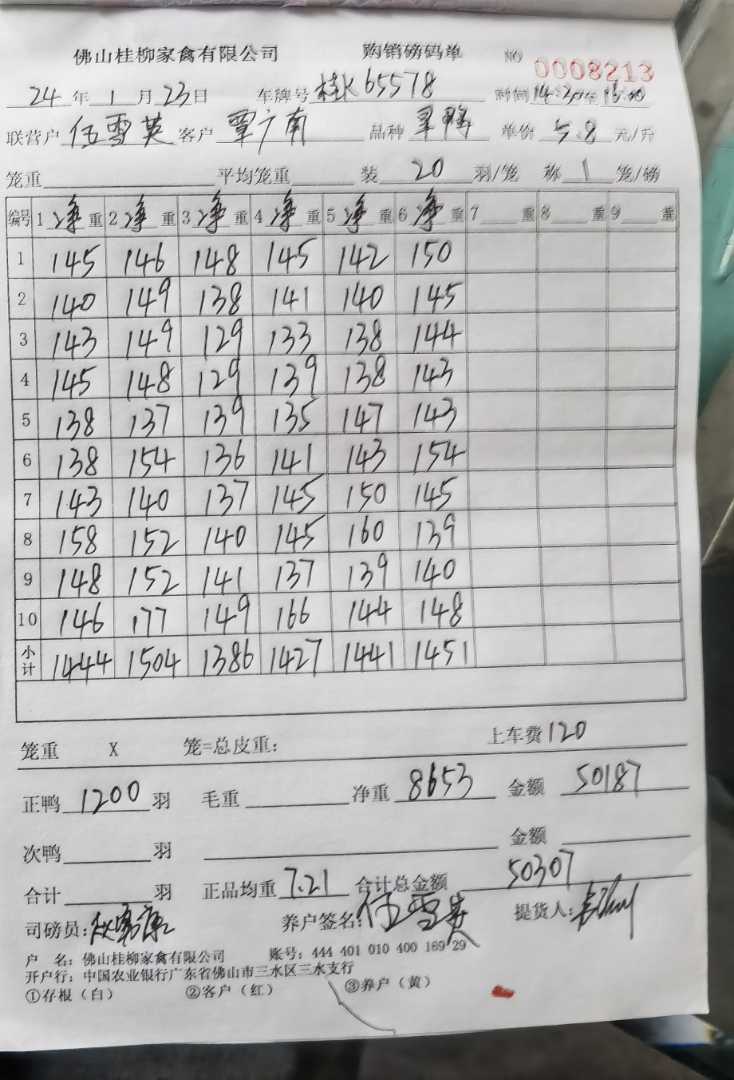 佛山桂柳家禽有限公司 购销磅码单 NO 0008213
24年1月23日 车牌号 桂K65578 时间14:30至15:00
联营户 伍雪英 客户 覃广南 品种 旱鸭 单价 5.8 元/斤
笼重 平均笼重 装 20 羽/笼 称 1 笼/磅
编号 1 净 重 2 净 重 3 净 重 4 净 重 5 净 重 6 净 重 7 重 8 重 9 重
1 145 146 148 145 142 150
2 140 149 138 141 140 145
3 143 149 129 133 138 144
4 145 148 129 139 138 143
5 138 137 139 135 147 143
6 138 154 136 141 143 154
7 143 140 137 145 150 145
8 158 152 140 145 160 139
9 148 152 141 137 139 140
10 146 177 149 166 144 148
小计 1444 1504 1386 1427 1441 1451
笼重 X 笼=总皮重： 上车费 120
正鸭 1200 羽 毛重 净重 8653 金额 50187
次鸭 羽 金额
合计 羽 正品均重 7.21 合计总金额 50307
司磅员: 养户签名: 伍雪英 提货人:
户 名：佛山桂柳家禽有限公司 账号：444 401 010 400 169 29
开户行：中国农业银行广东省佛山市三水区三水支行
①存根（白） ②客户（红） ③养户（黄）